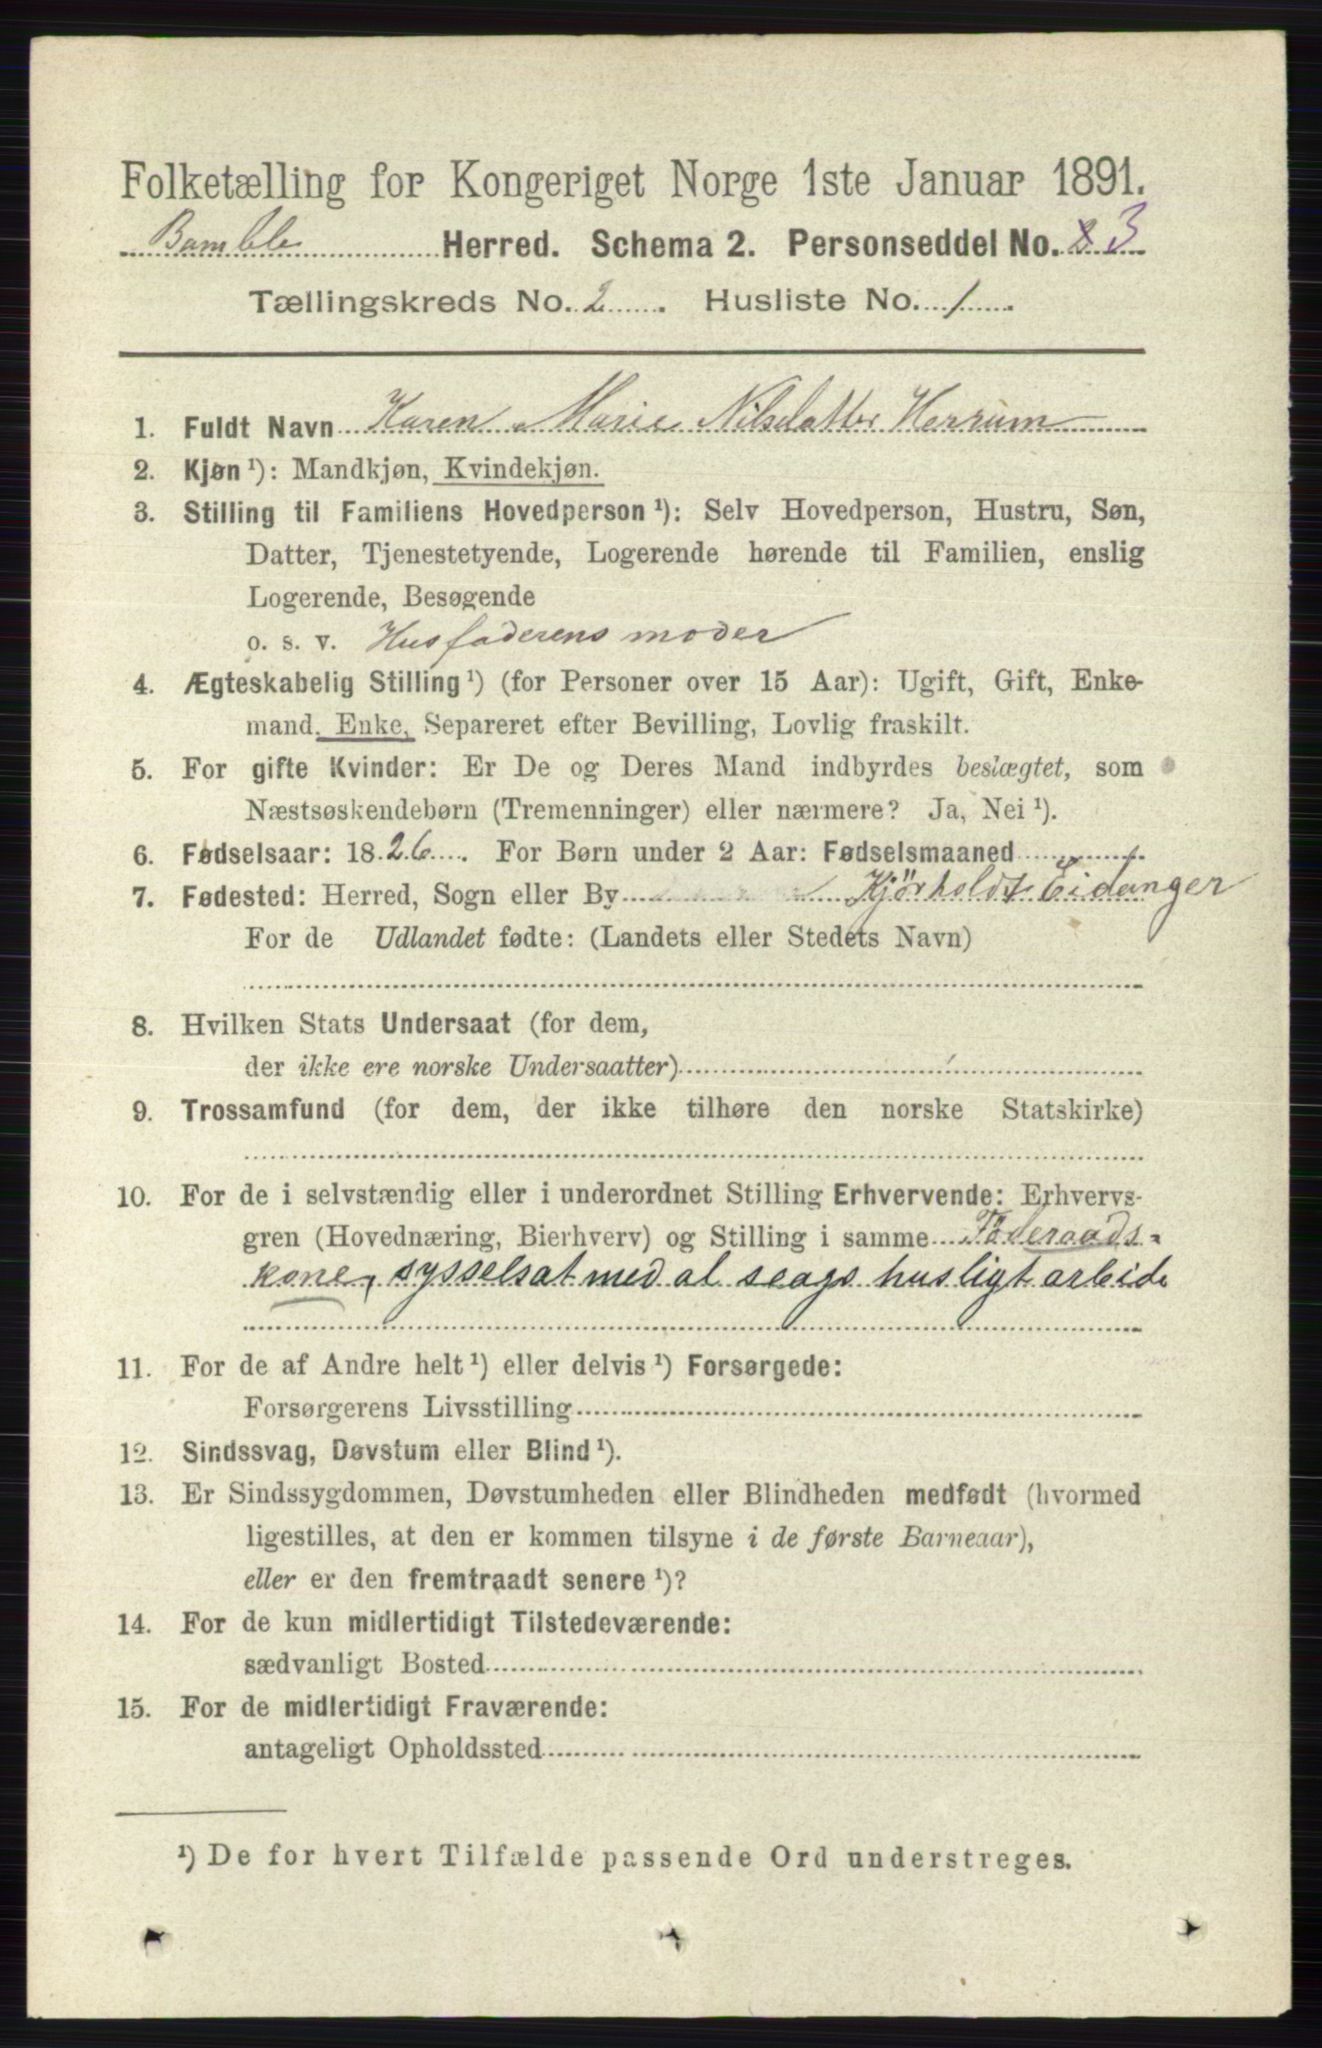 Folketælling for Kongeriget Norge 1ste Januar 1891.
Bamble Herred. Schema 2. Personseddel No. 3
Tællingskreds No. 2. Husliste No. 1.
1. Fuldt Navn Karen Marie Nilsdatter Herrum
2. Kjøn ¹): Mandkjøn, Kvindekjøn.
3. Stilling til Familiens Hovedperson ¹): Selv Hovedperson, Hustru, Søn,
Datter, Tjenestetyende, Logerende hørende til Familien, enslig
Logerende, Besøgende
o. s. v. Husfaderens moder
4. Ægteskabelig Stilling ¹) (for Personer over 15 Aar): Ugift, Gift, Enke-
mand, Enke, Separeret efter Bevilling, Lovlig fraskilt.
5. For gifte Kvinder: Er De og Deres Mand indbyrdes beslægtet, som
Næstsøskendebørn (Tremenninger) eller nærmere? Ja, Nei ¹).
6. Fødselsaar: 1826. For Børn under 2 Aar: Fødselsmaaned
7. Fødested: Herred, Sogn eller By Kjörholdt Eidanger
For de Udlandet fødte: (Landets eller Stedets Navn)
8. Hvilken Stats Undersaat (for dem,
der ikke ere norske Undersaatter)
9. Trossamfund (for dem, der ikke tilhøre den norske Statskirke)
10. For de i selvstændig eller i underordnet Stilling Erhvervende: Erhvervs-
gren (Hovednæring, Bierhverv) og Stilling i samme Föderaads-
kone, sysselsat med al slags husligt arbeide
11. For de af Andre helt ¹) eller delvis ¹) Forsørgede:
Forsørgerens Livsstilling
12. Sindssvag, Døvstum eller Blind ¹).
13. Er Sindssygdommen, Døvstumheden eller Blindheden medfødt (hvormed
ligestilles, at den er kommen tilsyne i de første Barneaar),
eller er den fremtraadt senere ¹)?
14. For de kun midlertidigt Tilstedeværende:
sædvanligt Bosted
15. For de midlertidigt Fraværende:
antageligt Opholdssted
¹) De for hvert Tilfælde passende Ord understreges.